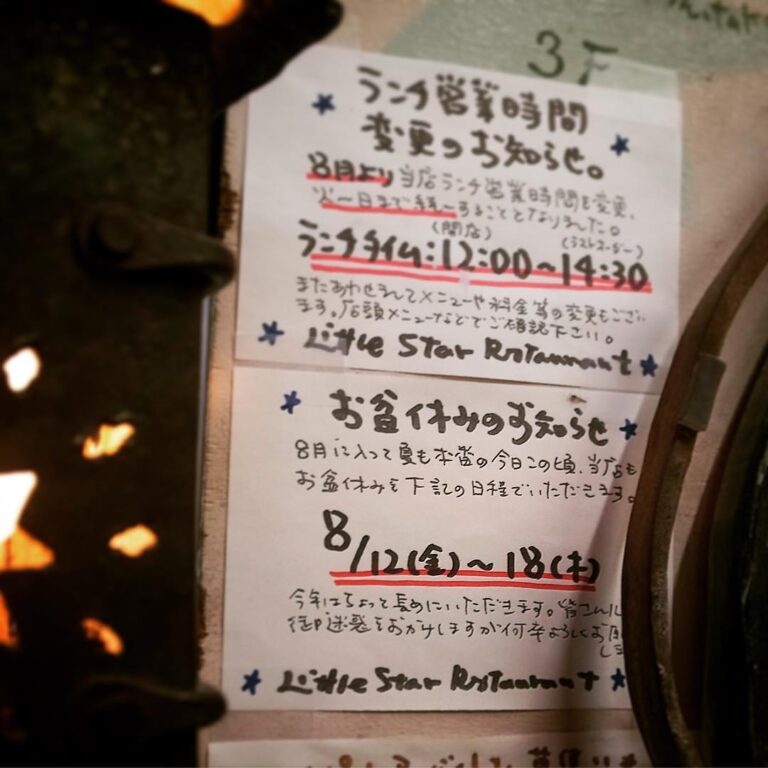 3F
ランチ営業時間
変更のお知らせ。
8月より当店ランチ営業時間を変更、
火〜日まで統一することとなりました。
(開店) (ラストオーダー)
ランチタイム:12:00〜14:30
またあわせましてメニューや料金等の変更もござい
ます。店頭メニューなどでご確認下さい。
Little Star Restaurant
お盆休みのお知らせ
8月に入って夏も本番の今日この頃、当店も
お盆休みを下記の日程でいただきます。
8/12(金)〜18(木)
今年はちょっと長めにいただきます。皆さんに
御迷惑をおかけしますが何卒よろしくお願
します
Little Star Restaurant